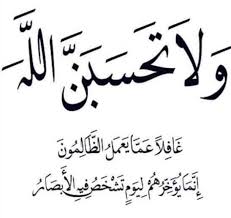 وَلَا تَحْسَبَنَّ اللَّهَ
غَافِلًا عَمَّا يَعْمَلُ الظَّالِمُونَ
إِنَّمَا يُؤَخِّرُهُمْ لِيَوْمٍ تَشْخَصُ فِيهِ الْأَبْصَارُ